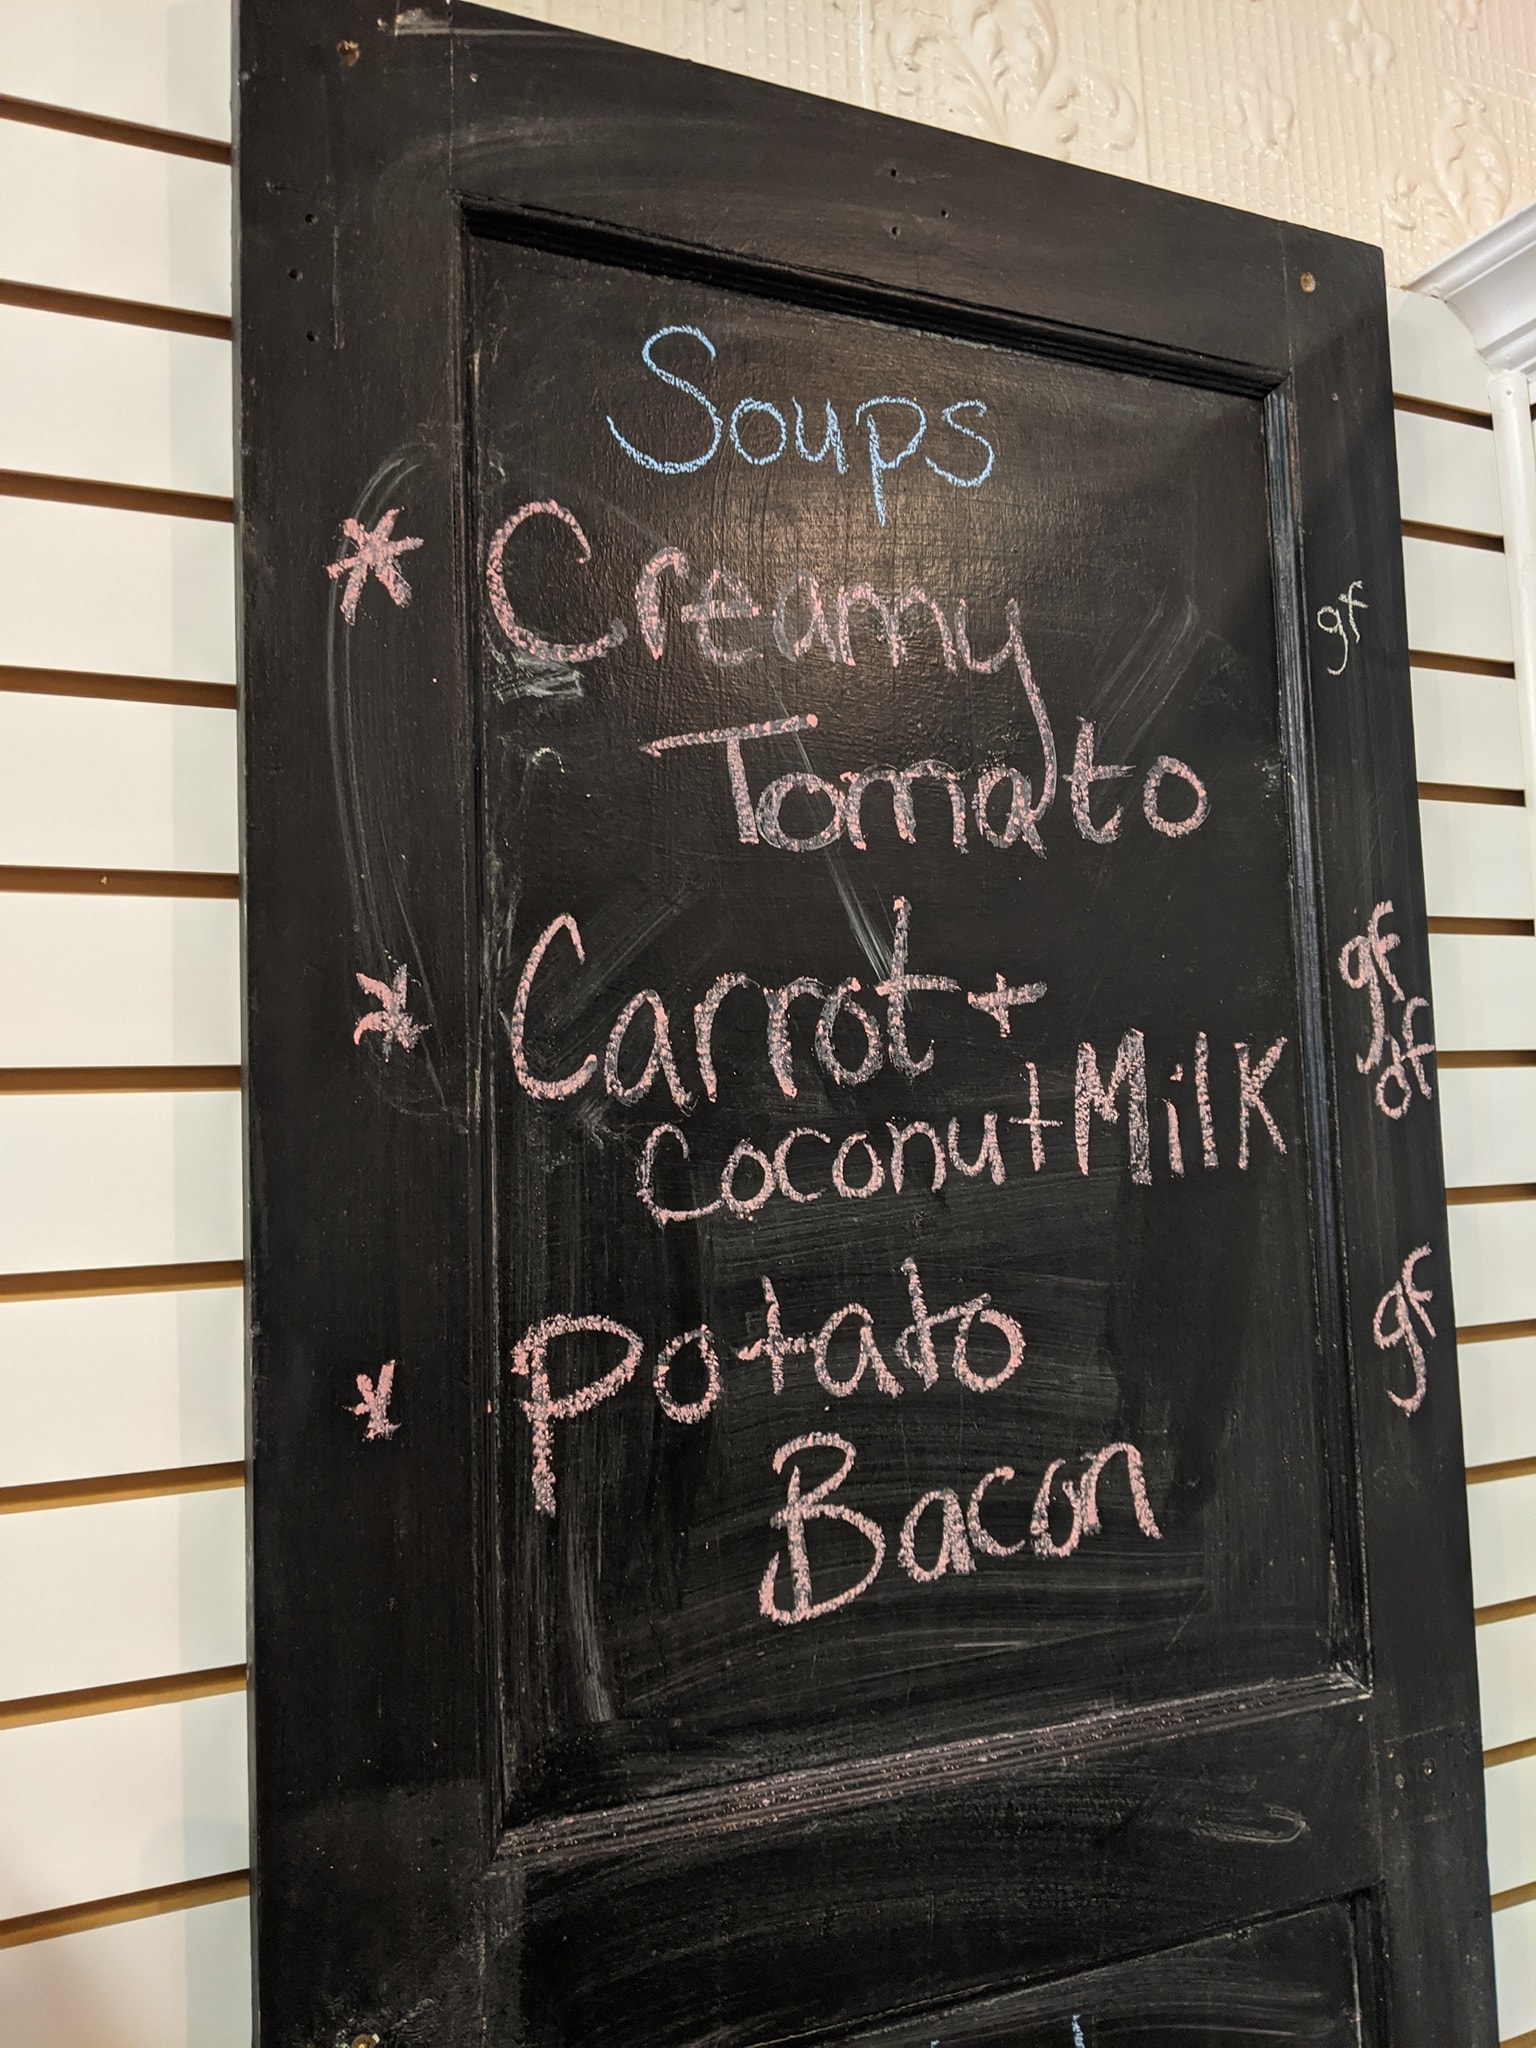 Soups
* Creamy gf
Tomato
* Carrot + gf
Coconut Milk df
* Potato gf
Bacon